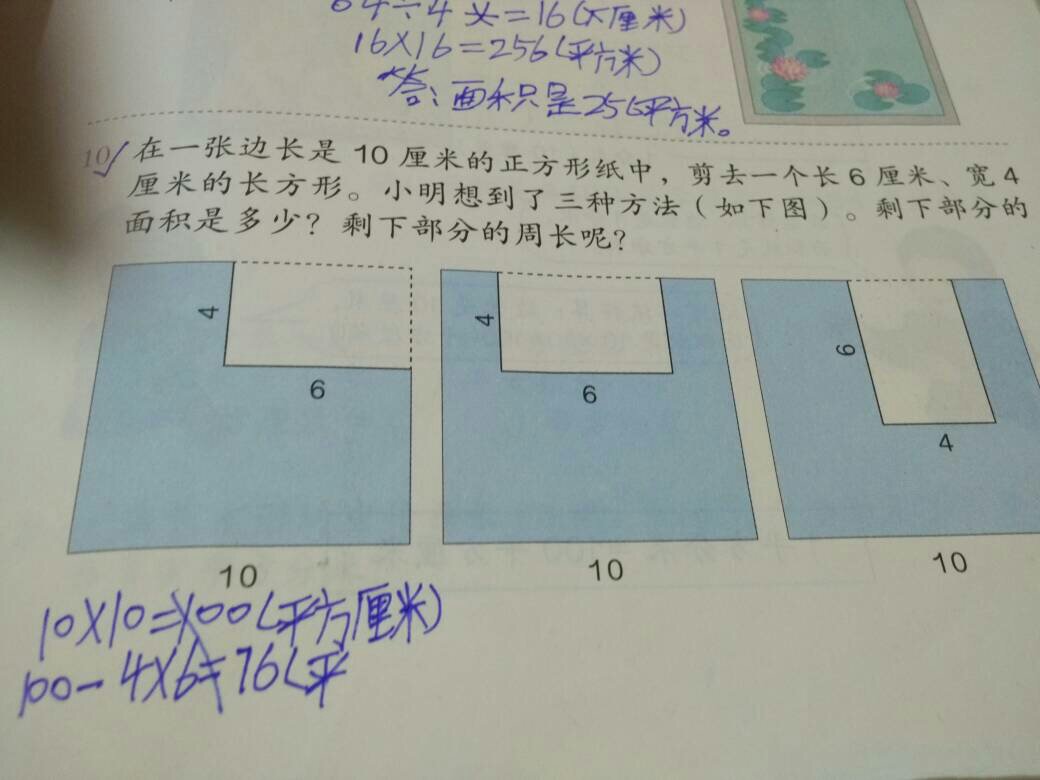 64÷4=16(厘米)
16×16=256(平方米)
答:面积是256平方米。
10 在一张边长是 10 厘米的正方形纸中,剪去一个长 6 厘米、宽 4
厘米的长方形。小明想到了三种方法(如下图)。剩下部分的
面积是多少?剩下部分的周长呢?
4
6
10
4
6
10
6
4
10
10×10=100(平方厘米)
100-4×6=76(平